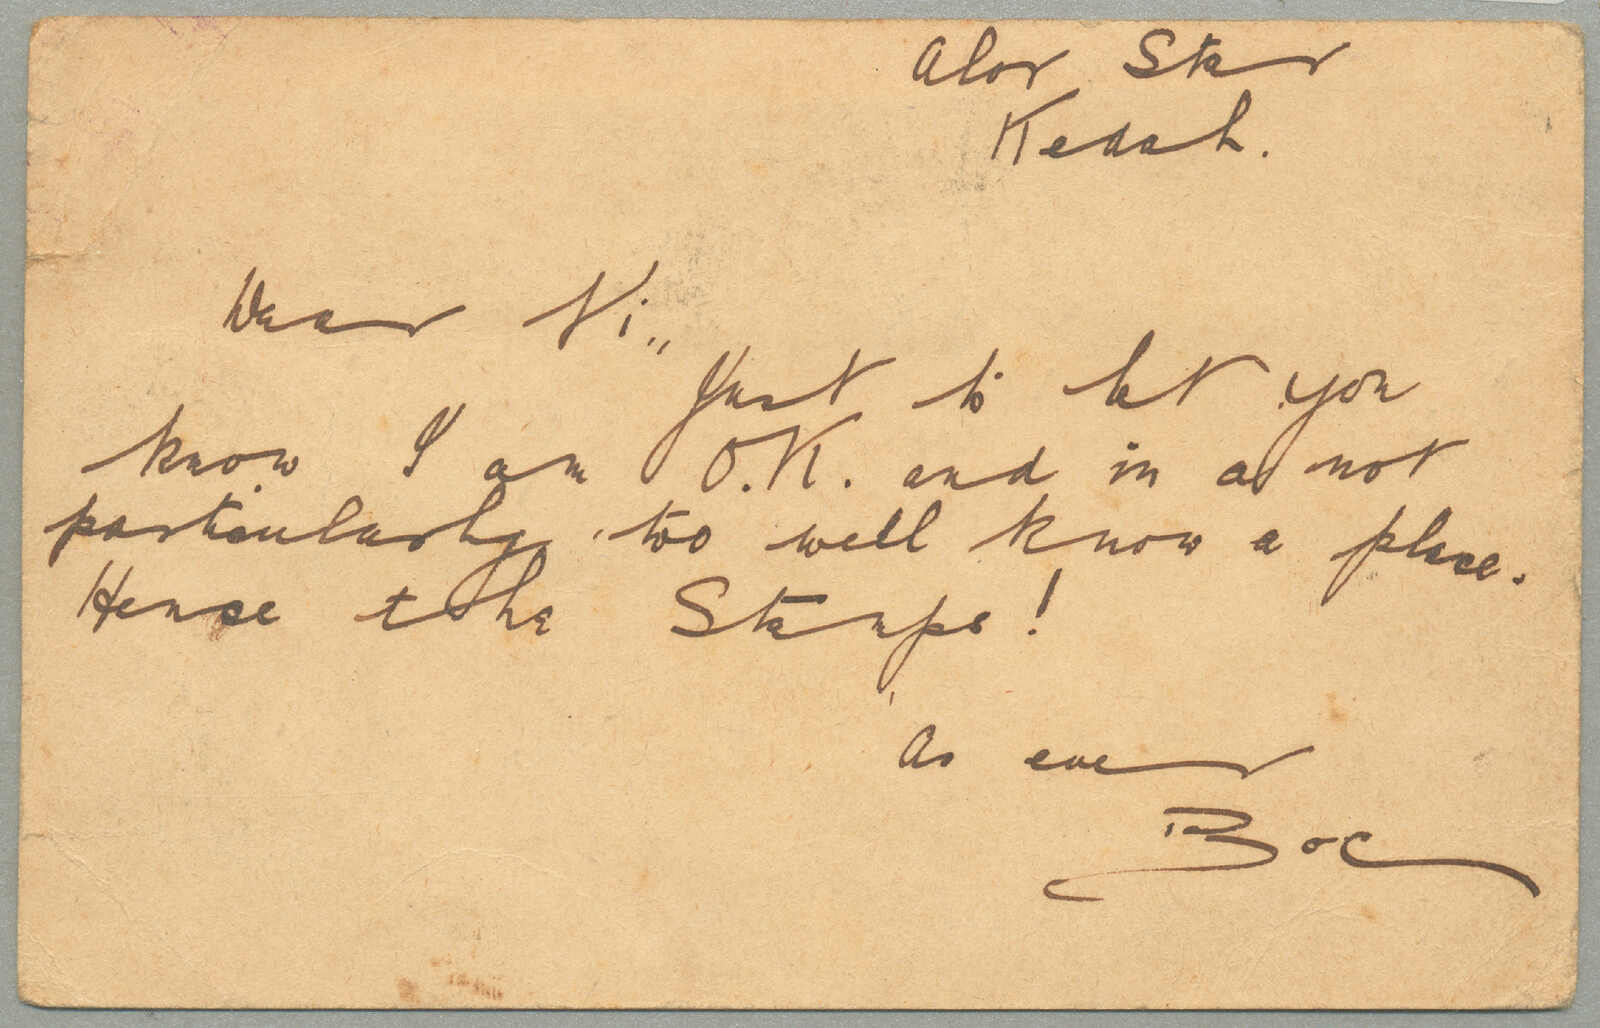 Alor Star
Kedah.
Dear Vi,,
Just to let you
know I am O.K. and in a not
particularly too well know a place.
Hence the Stamps!
As ever
Boc